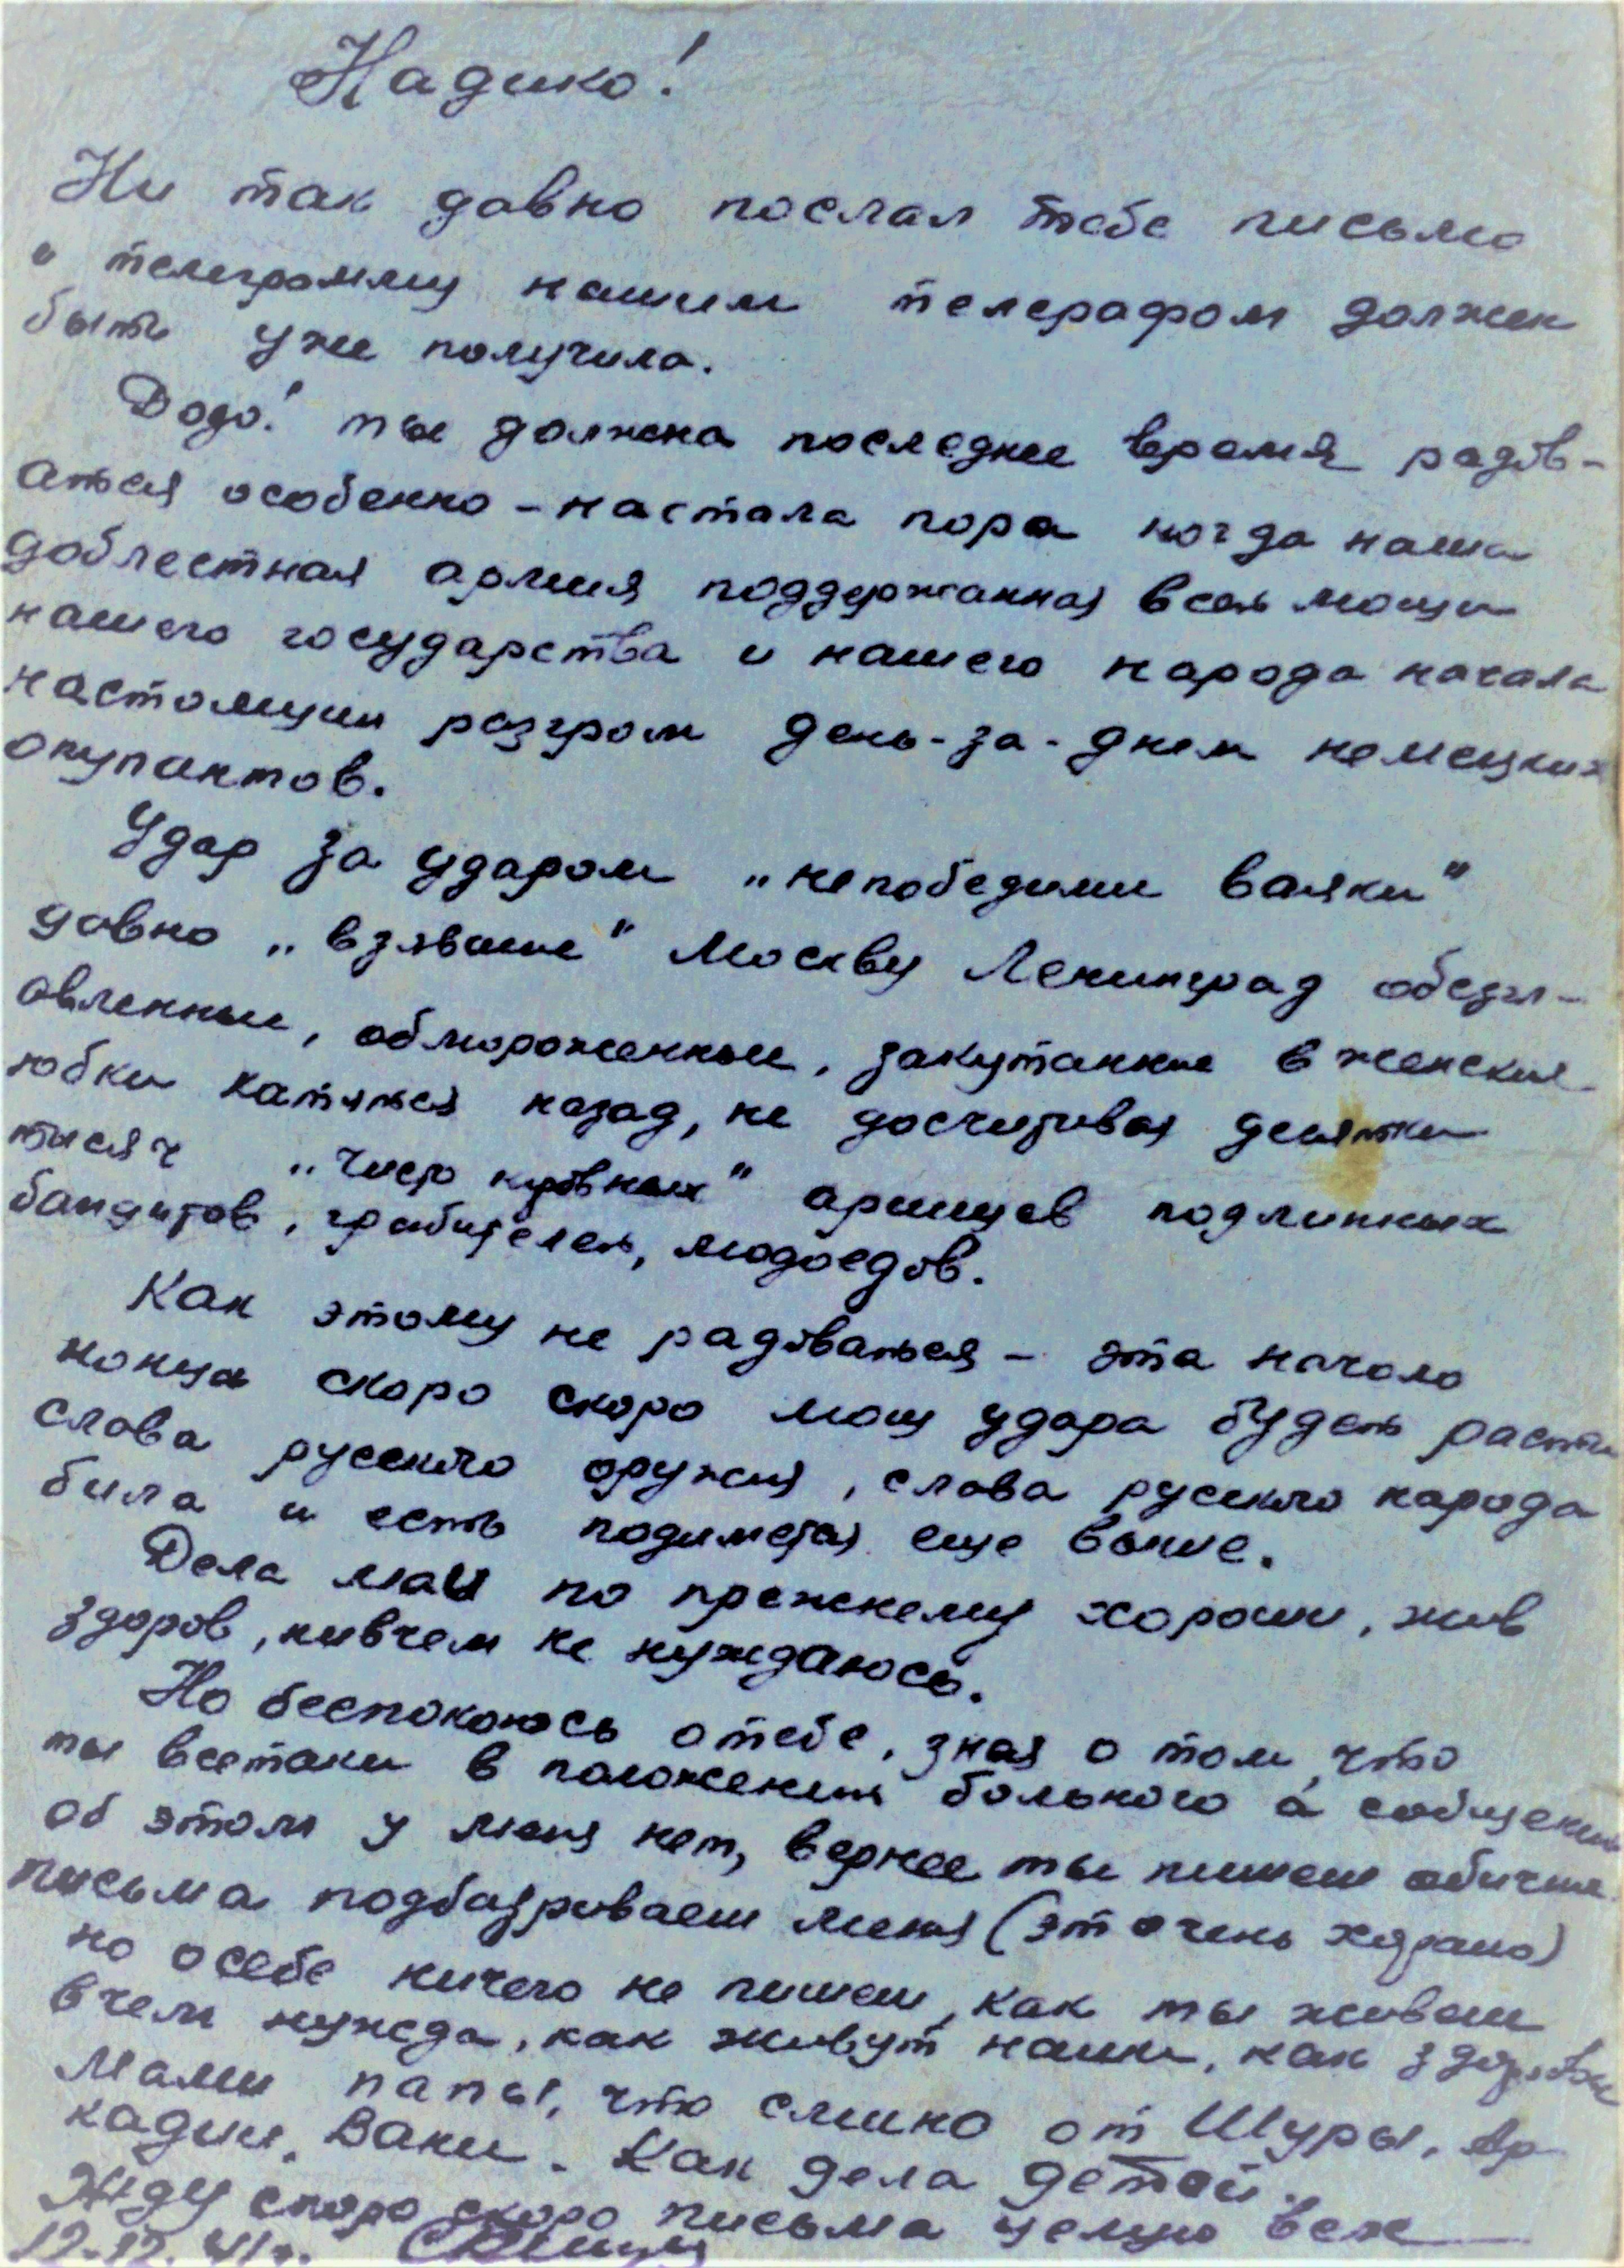 Надико!
Ни так давно послал тебе письмо
и телеграмму нашим телерафом должен
быть уже получила.
Додо! ты должна последнее время радов-
аться особенно - настала пора когда наша
доблестная армия поддержанная всей мощи
нашего государства и нашего народа начала
настоящии разгром день-за-днем немецких
окупантов.
Удар за ударом „непобедими вояки"
давно „взявшие" Москву Ленинград обезгл-
авленные, обмороженные, закутанные в женские
юбки катяться назад, не досчитывая десятки
тысяч „чисто кровных" арийцев подлинных
бандитов, грабителей, людоедов.
Как этому не радоваться - эта начало
конца скоро скоро мощ удара будет расти
слава русского оружия, слава русского народа
била и есть подиметая еще выше.
Дела маи по прежнему хороши, жив
здоров, нивчем не нуждаюсь.
Но беспокоюсь о тебе, зная о том, что
ты всетаки в положении больного а сообщении
об этом у меня нет, вернее ты пишеш обичние
письма подбадриваеш меня (эт очень харашо)
но о себе ничего не пишеш, как ты живеш
в чем нужда, как живут наши, как здоровье
мами папы, что слишно от Шуры, Ар-
кадии, Ваки. Как дела детей.
Жду скоро скоро письма целую всех
12-12. 41г.